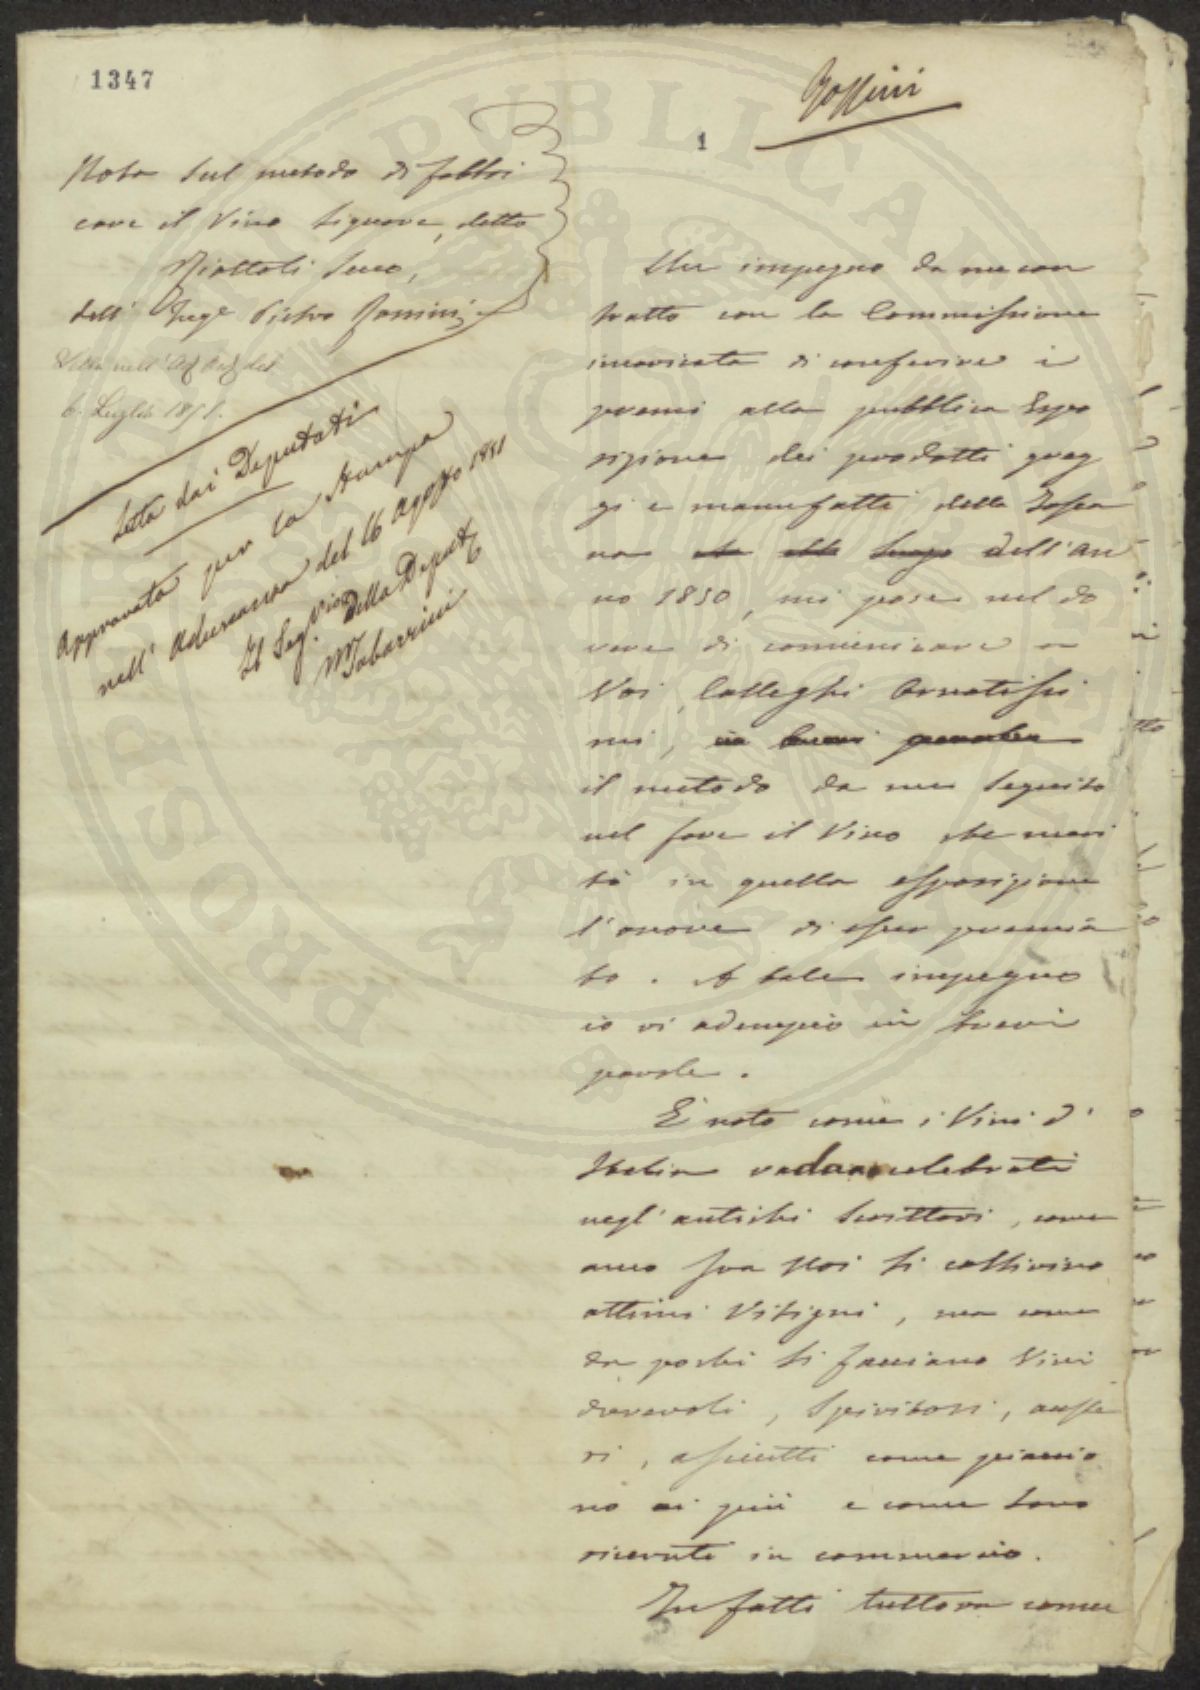 1347
1
Nota sul metodo di fabbri
care il Vino liquore, detto
secco,
dell' Inge Pietro
Letta nell'
6. Luglio 1851.
Letta dai Deputati
Approvata per la stampa
nell' Adunanza del 16 Agosto 1851
Il Seg. della Deput
M Tabarrini
Un impegno da me con
tratto con la Commissione
incaricata di conferire i
premi alla pubblica Espo
sizione dei prodotti greg
gi e manufatti della Tosca
na dell'an
no 1850, mi pose nel do
vere di comunicare a
Voi, Colleghi Ornatissi
mi, in brevi parole
il metodo da me seguito
nel fare il Vino che meri
tò in quella esposizione
l'onore di esser premia
to. A tale impegno
io vi adempio in brevi
parole.
È noto come i Vini d'
Italia vadano celebrati
negl'antichi Scrittori, come
anco fra Noi si coltivino
ottimi Vitigni, ma come
da pochi si facciano Vini
durevoli, spiritosi, auste
ri, asciutti come piaccio
no ai più e come sono
ricevuti in commercio.
Infatti tuttora come